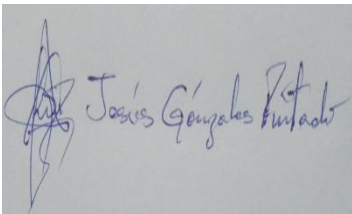 Jesús Gónzales Pintado